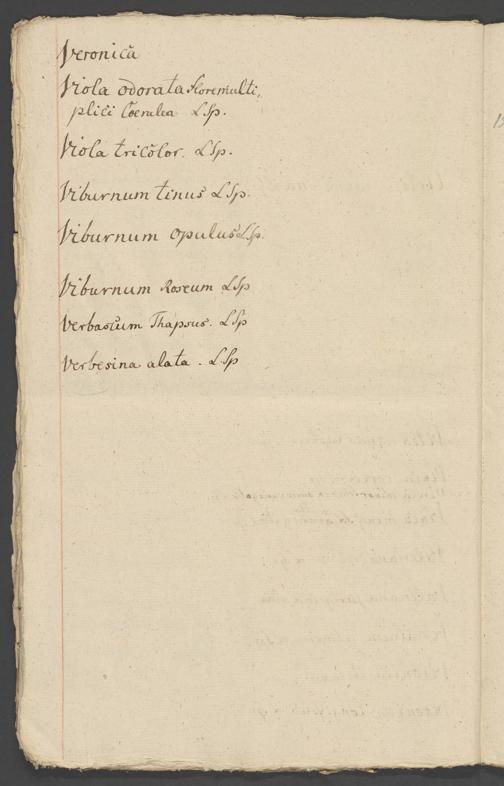 Veronica
Viola odorata floremulti,
plici Coerulea L Sp.
Viola tricolor. L Sp.
Viburnum tinus L Sp.
Viburnum opulus L Sp.
Viburnum Roseum L Sp
Verbascum Thapsus. L Sp
Verbesina alata. L. Sp